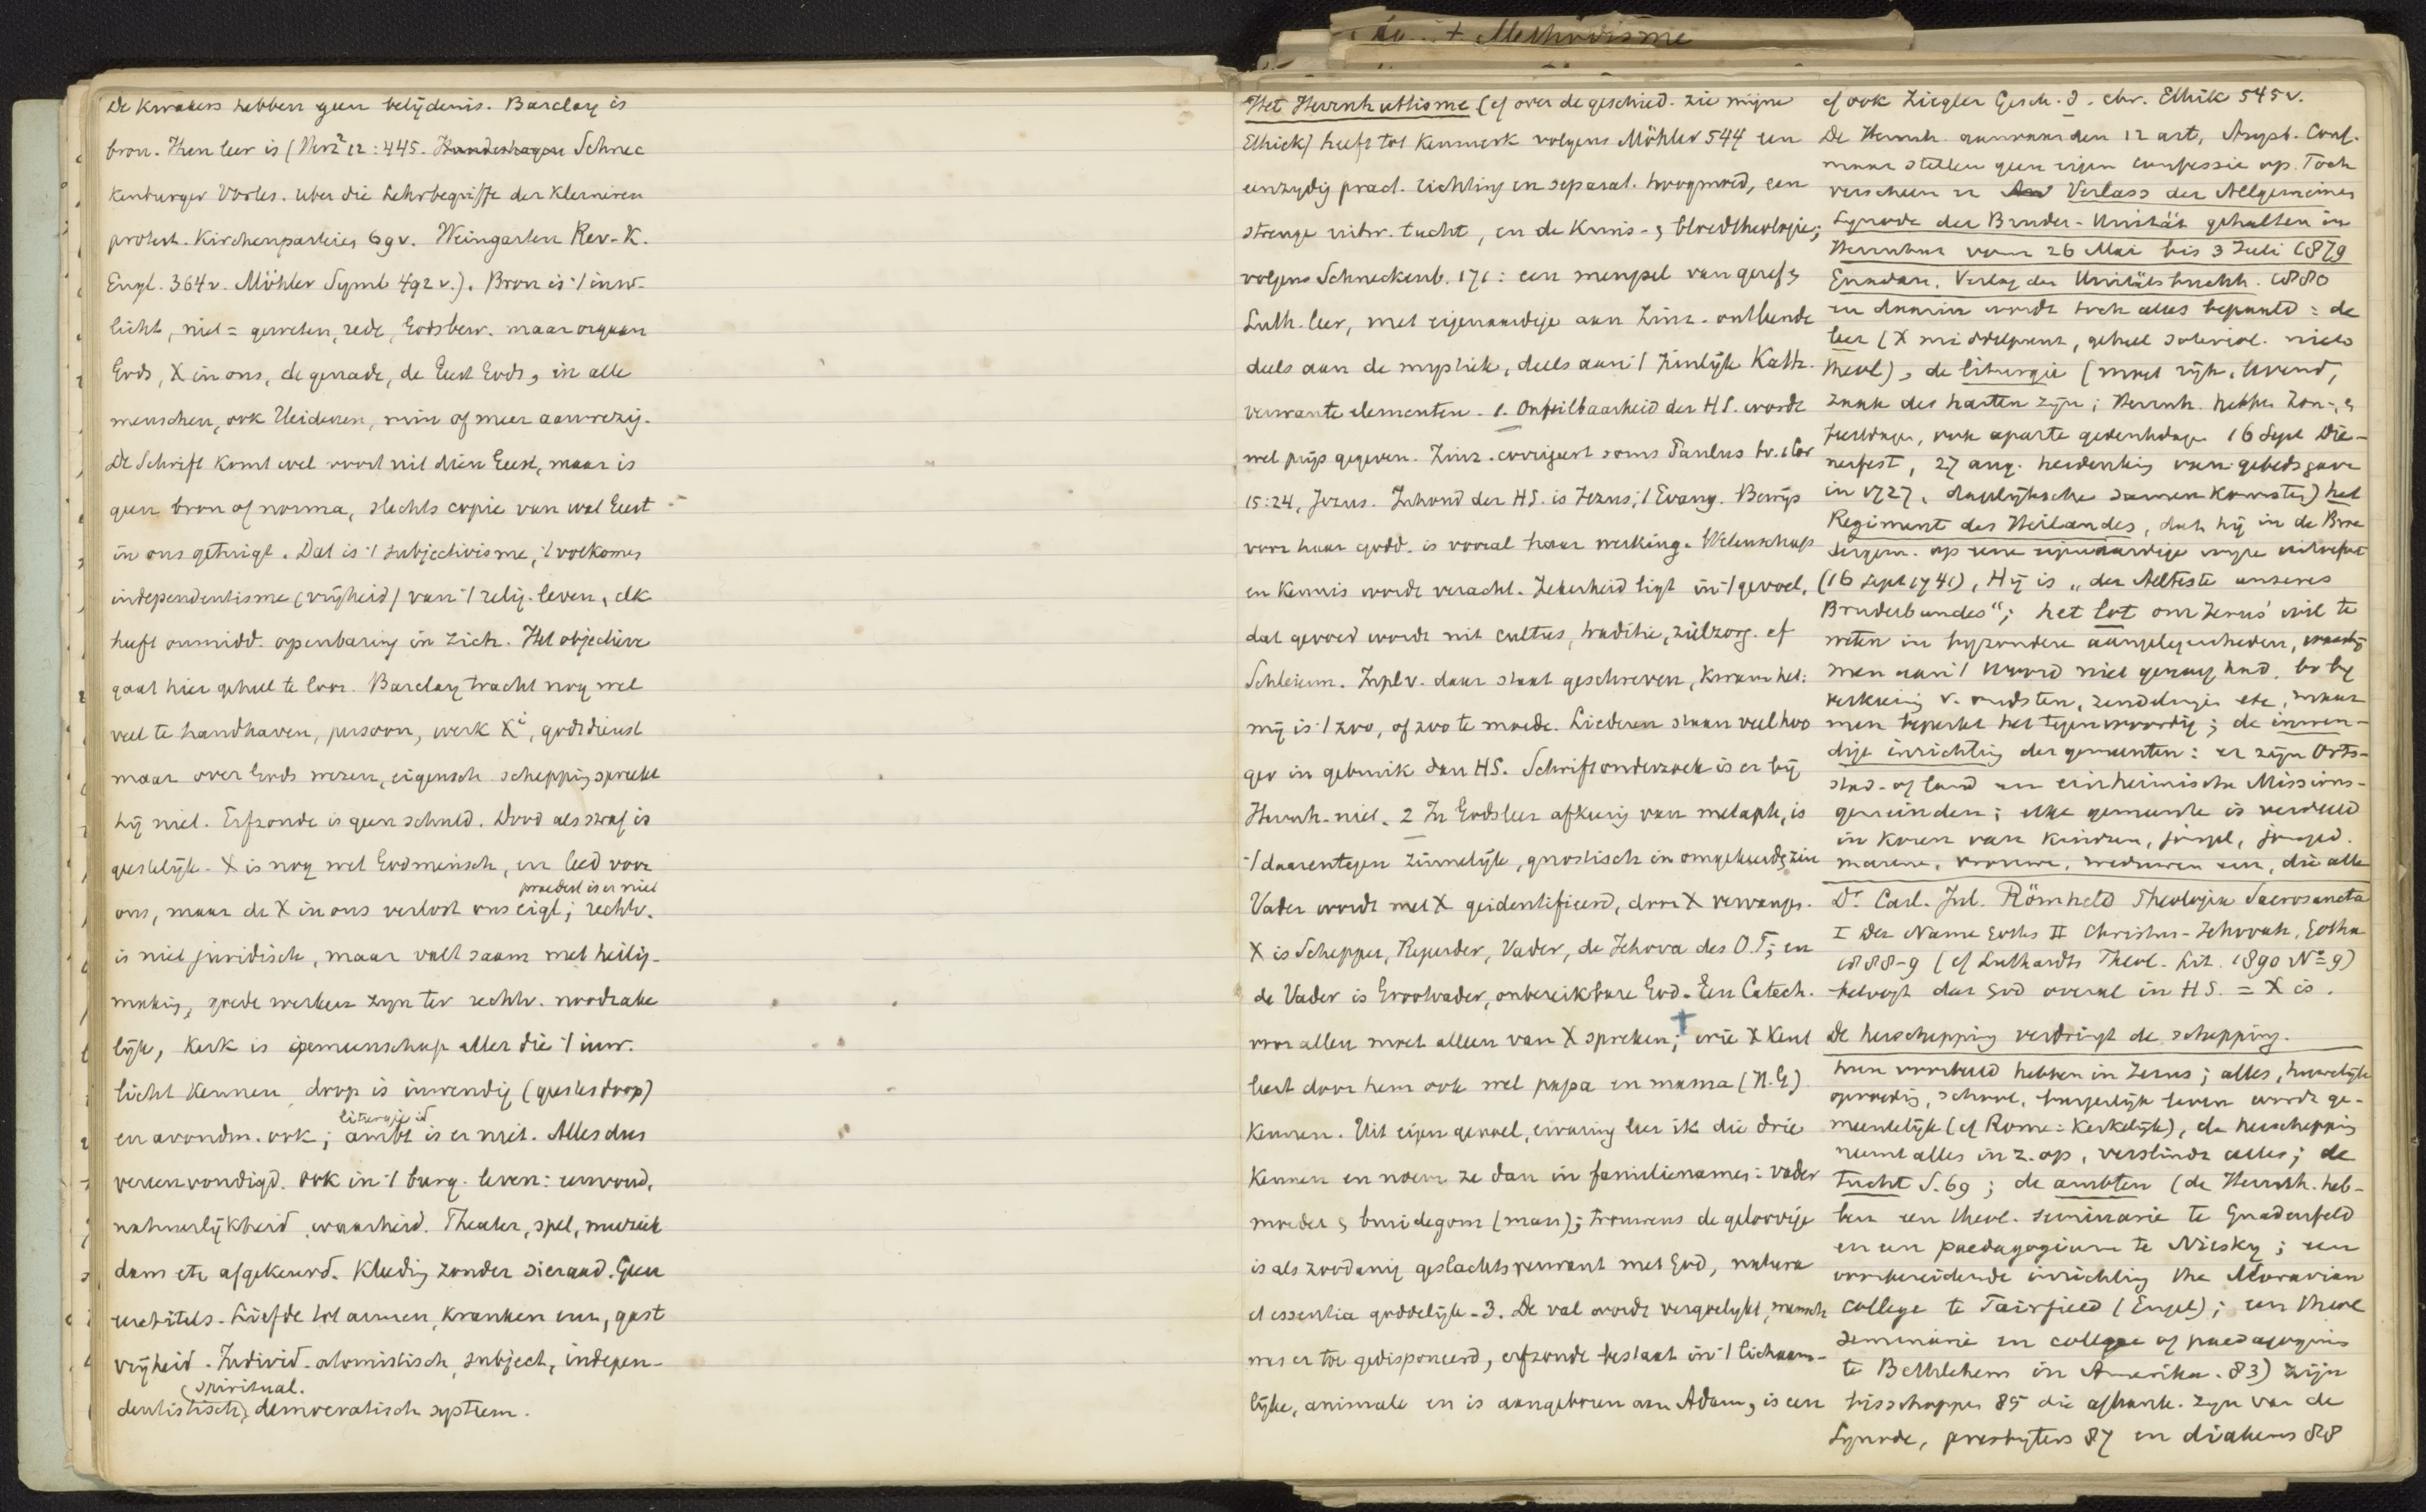 De Kwakers hebben geen belijdenis. Barclay is
bron. Hun leer is (Herz² 12:445. Hundeshagen Schnec
kenburger Vorles. uber die Lehrbegriffe der Kleineren
protest. Kirchenparteien 69v. Weingarten Rev. K.
Engl. 364v. Möhler Symb 492 v.). Bron is 't inw.
licht, niet = geweten, rede, Godsbew. maar orgaan
Gods, X in ons, de genade, de Geest Gods, in alle
menschen, ook Heidenen, min of meer aanwezig.
De Schrift komt wel voort uit dien Geest, maar is
geen bron of norma, slechts copie van wat Geest
in ons getuigt. Dat is 't subjectivisme, 't volkomen
independentisme (vrijheid) van 't relig. leven, elk
heeft onmidd. openbaring in zich. Het objectieve
gaat hier geheel te loor. Barclay tracht nog wel
veel te handhaven, persoon, werk Xi, godsdienst
maar over Gods wezen, eigensch. schepping spreekt
hij niet. Erfzonde is geen schuld. Dood als straf is
geestelijk. X is nog wel Godmensch, en leed voor
praedest is er niet
ons, maar de X in ons verlost ons eigl; rechtv.
is niet juridisch, maar valt saam met heilig-
making, goede werken zijn ter rechtv. noodzake
lijk, Kerk is gemeenschap aller die 't inw.
licht kennen, doop is inwendig (geestesdoop)
liturgie id
en avondm. ook; ambt is er niet. Alles dus
vereenvoudigd. ook in 't burg. leven: eenvoud,
natuurlijkheid, waarheid. Theater, spel, muziek
dans etc afgekeurd. Kleeding zonder sieraad. Geen
eeretitels. Liefde tot armen, kranken enz, gast
vrijheid. Individ. atomistisch, subject, indepen-
spiritual.
dentistisch, democratisch systeem.
do. + Methodisme
Het Herrnhuttisme (cf over de geschied. zie mijne
Ethiek) heeft tot kenmerk volgens Möhler 544 een
eenzijdig pract. richting en separat. hoogmoed, een
strenge uitw. tucht, en de Kruis- & bloedtheologie;
volgens Schneckenb. 171: een mengsel van geref &
Luth. leer, met eigenaardige aan Zinz. ontleende
deels aan de mystiek, deels aan 't zinlijk Kath.
verwante elementen. 1. Onfeilbaarheid der HS. wordt
wel prijs gegeven. Zinz. corrigeert soms Paulus bv. 1 Cor
15:24, Jezus. Inhoud der HS. is Jezus, 't Evang. Bewijs
voor haar godd. is vooral haar werking. Wetenschap
en kennis wordt veracht. Zekerheid ligt in 't gevoel,
dat gevoed wordt uit cultus, traditie, zielzorg. cf
Schleierm. Inpl v. daar staat geschreven, kwam het:
mij is 't zoo, of zoo te moede. Liederen staan veel hoo
ger in gebruik dan HS. Schriftonderzoek is er bij
Herrnh. niet. 2 In Godsleer afkeerig van metaph, is
't daarentegen zinnelijk, gnostisch in omgekeerde zin
Vader wordt met X geidentificeerd, door X vervangen.
X is Schepper, Regeerder, Vader, de Jehova des O.T; en
de Vader is Grootvader, onbereikbare God. Een Catech.
voor allen moet alleen van X spreken; wie X kent
leert door hem ook wel papa en mama (H.G)
kennen. Uit eigen gevoel, ervaring leer ik die drie
kennen en noem ze dan in familienamen: vader
moeder & bruidegom (man); trouwens de geloovige
is als zoodanig geslachtsverwant met God, natura
et essentia goddelijk. 3. De val wordt vergoelijkt, mensch
was er toe gedisponeerd, erfzonde bestaat in 't lichaam-
lijke, animale en is aangeboren aan Adam, is een
cf ook Ziegler Gesch. d. chr. Ethik 545v.
De Herrnh. aanvaarden 12 art. Augsb. Conf.
maar stellen geen eigen confessie op. Toch
verscheen er Verlass der Allgemeinen
Synode der Bruder-Unität gehalten in
Herrnhut vom 26 Mai bis 3 Juli 1879
Gnadau, Verlag der Unitätsbuchh. 1880
en daarin wordt toch alles bepaald: de
leer (X middelpunt, geheel soteriol. niets
theol), de liturgie (moet rijk, levend,
zaak des harten zijn; Herrnh. hebben Zon-, &
feestdagen, ook aparte gedenkdagen 16 Sept Die-
nerfest, 27 aug. herdenking van gebedsgave
in 1727, dagelijksche samenkomsten) het
Regiment des Heilandes, dat hij in de Broe
dergem. op eene eigenaardige wijze uitoefent
(16 Sept 1741), Hij is „der Aelteste unseres
Bruderbundes"; het lot om Jezus' wil te
weten in byzondere aangelegenheden, waarbij
men aan 't Woord niet genoeg had, bv by
verkiezing v. oudsten, zendelingen etc, maar
men beperkt het tegenwoordig; de inwen-
dige inrichting der gemeenten: er zijn Orts-
stad- of land en einheimische Missions-
gemeinden; elke gemeente is verdeeld
in koren van kinderen, jongel, jonged.
mannen, vrouwen, weduwen enz, die alle
Dr. Carl. Jul. Römheld Theologia Sacrosancta
I Der Name Gottes II Christus-Jehovah, Gotha
1888-9 (cf Luthardts Theol. Lit. 1890 No 9)
betoogt dat God overal in HS. = X is.
De herschepping verdringt de schepping.
hun voorbeeld hebben in Jezus; alles, huwelijk
opvoeding, school, burgerlijk leven wordt ge-
meentelijk (cf Rome: kerkelijk), de herschepping
neemt alles in z. op, verslindt alles; de
tucht S. 69; de ambten (de Herrnh. heb-
ben een theol. seminarie te Gnadenfeld
en een paedagogium te Niesky; een
voorbereidende inrichting the Moravian
College te Fairfield (Engel); een theol
seminarie en college of paedagogium
te Bethlehem in Amerika. 83) zijn
bisschoppen 85 die afhank. zijn van de
Synode, presbyters 87 en diakens 88